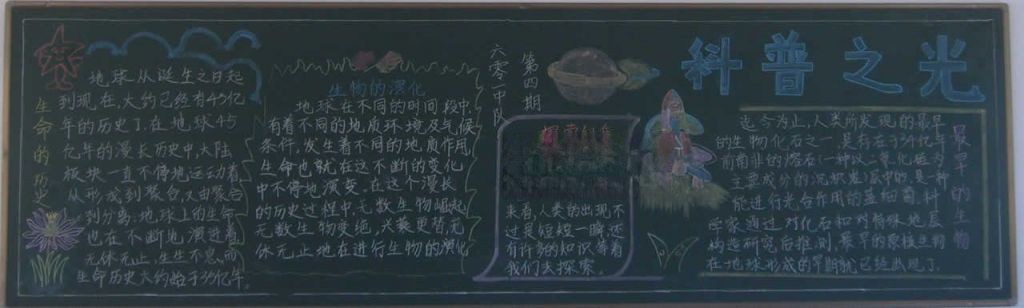 科普之光
第四期
六零一中队
生命的历史
地球从诞生之日起
到现在,大约已经有45亿
年的历史了,在地球45
亿年的漫长历史中,大陆
板块一直不停地运动着
从形成到聚合,又由聚合
到分离,地球上的生命
也在不断地演进着
无休无止,生生不息,而
生命历史大约始于35亿年
生物的演化
地球在不同的时间段中
有着不同的地质环境及气候
条件,发生着不同的地质作用,
生命也就在这不断的变化
中不停地演变,在这个漫长
的历史过程中,无数生物崛起
无数生物灭绝,兴衰更替,无
休无止地在进行生物的演化
来看,人类的出现不
过是短短一瞬,还
有许多的知识等着
我们去探索。
最早的生物
迄今为止,人类所发现的最早
的生物化石之一,是存在于34亿年
前南非的燧石(一种以二氧化硅为
主要成分的沉积岩)层中的,是一种
能进行光合作用的蓝细菌,科
学家通过对化石和对特殊地层
构造研究后推测,最早的原核生物
在地球形成的早期就已经出现了